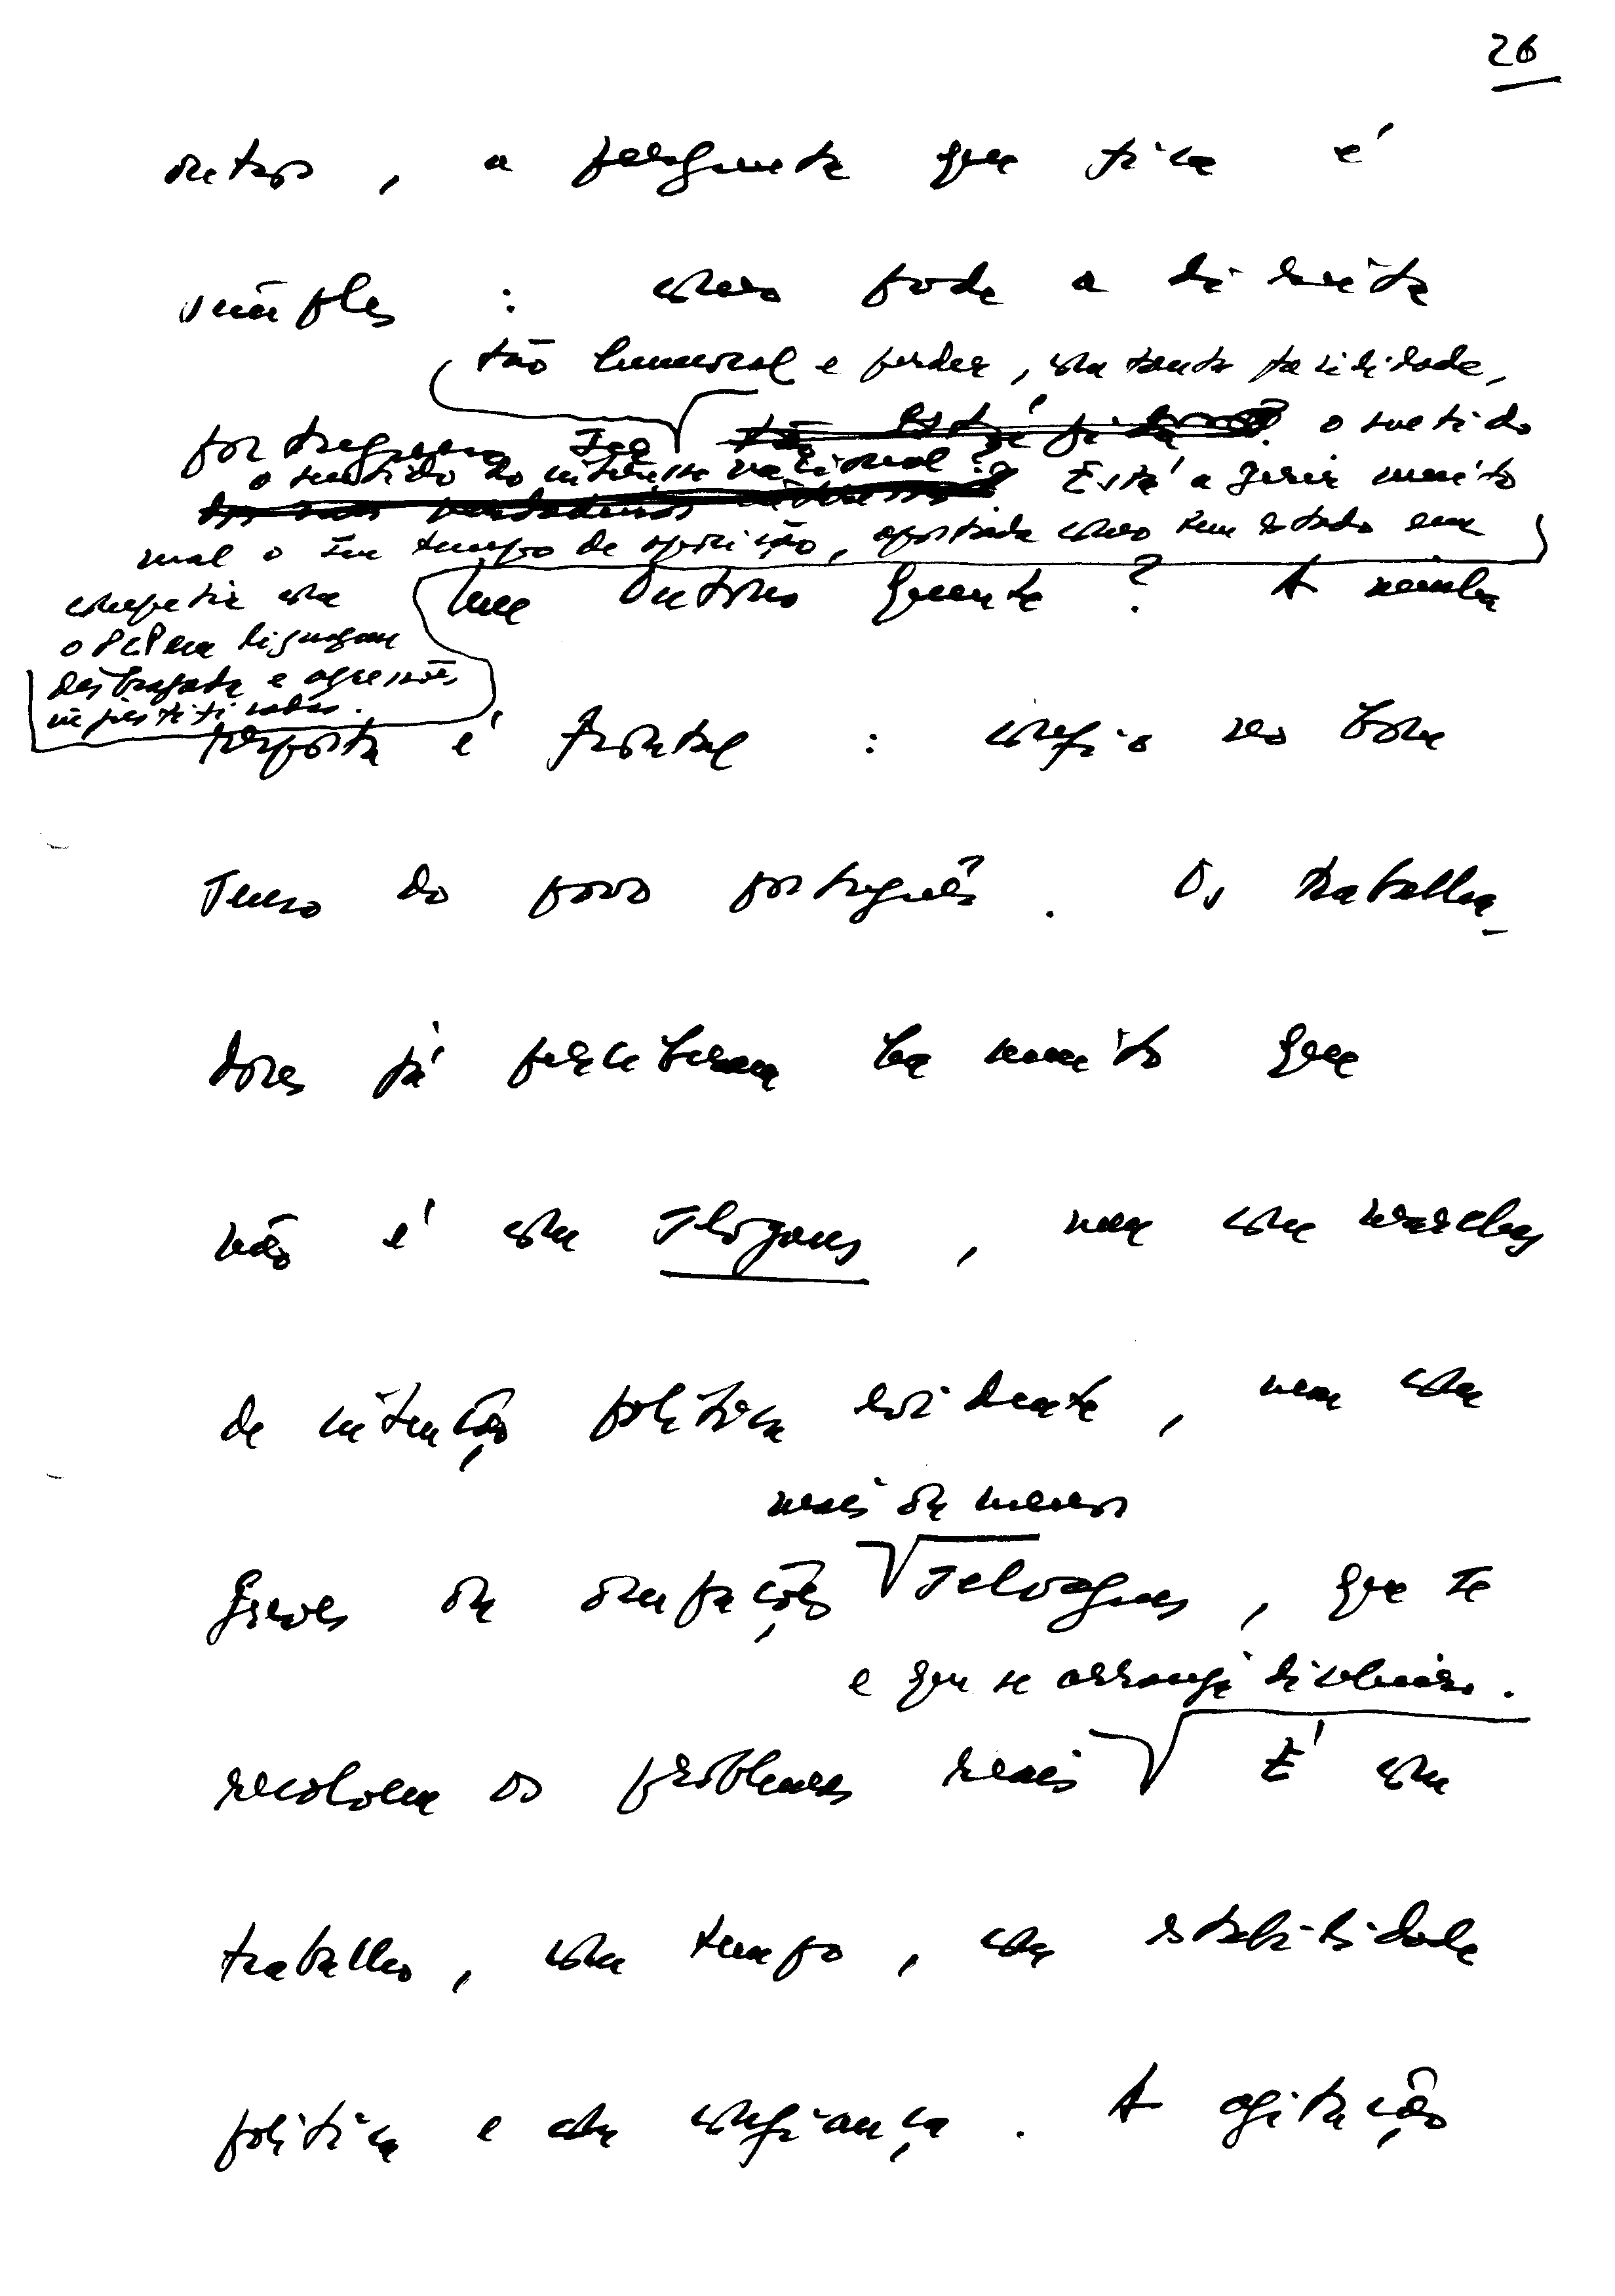 26
outros, a pergunta que fica é
simples : como pode a direita
tão humoral e perder, com tanta facilidade,
portuguesa ser o sentido
o sentido do interesse nacional? Está a gerir muito
mal o seu tempo de oposição, apostada como tem estado em
competir com
o PCP na linguagem
desbragada e agressões
injustificadas.
um Outono quente ? A minha
resposta é frontal : confio no bom
senso do povo português . Os trabalha-
dores já perceberam há muito que
não é com slogans , nem com marchas
de intenção política evidente , nem com
mais ou menos
greves ou ocupações selvagens , que se
e que se arranja dinheiro .
resolvem os problemas reais É com
trabalho , com tempo , com estabilidade
política e com confiança . A agitação